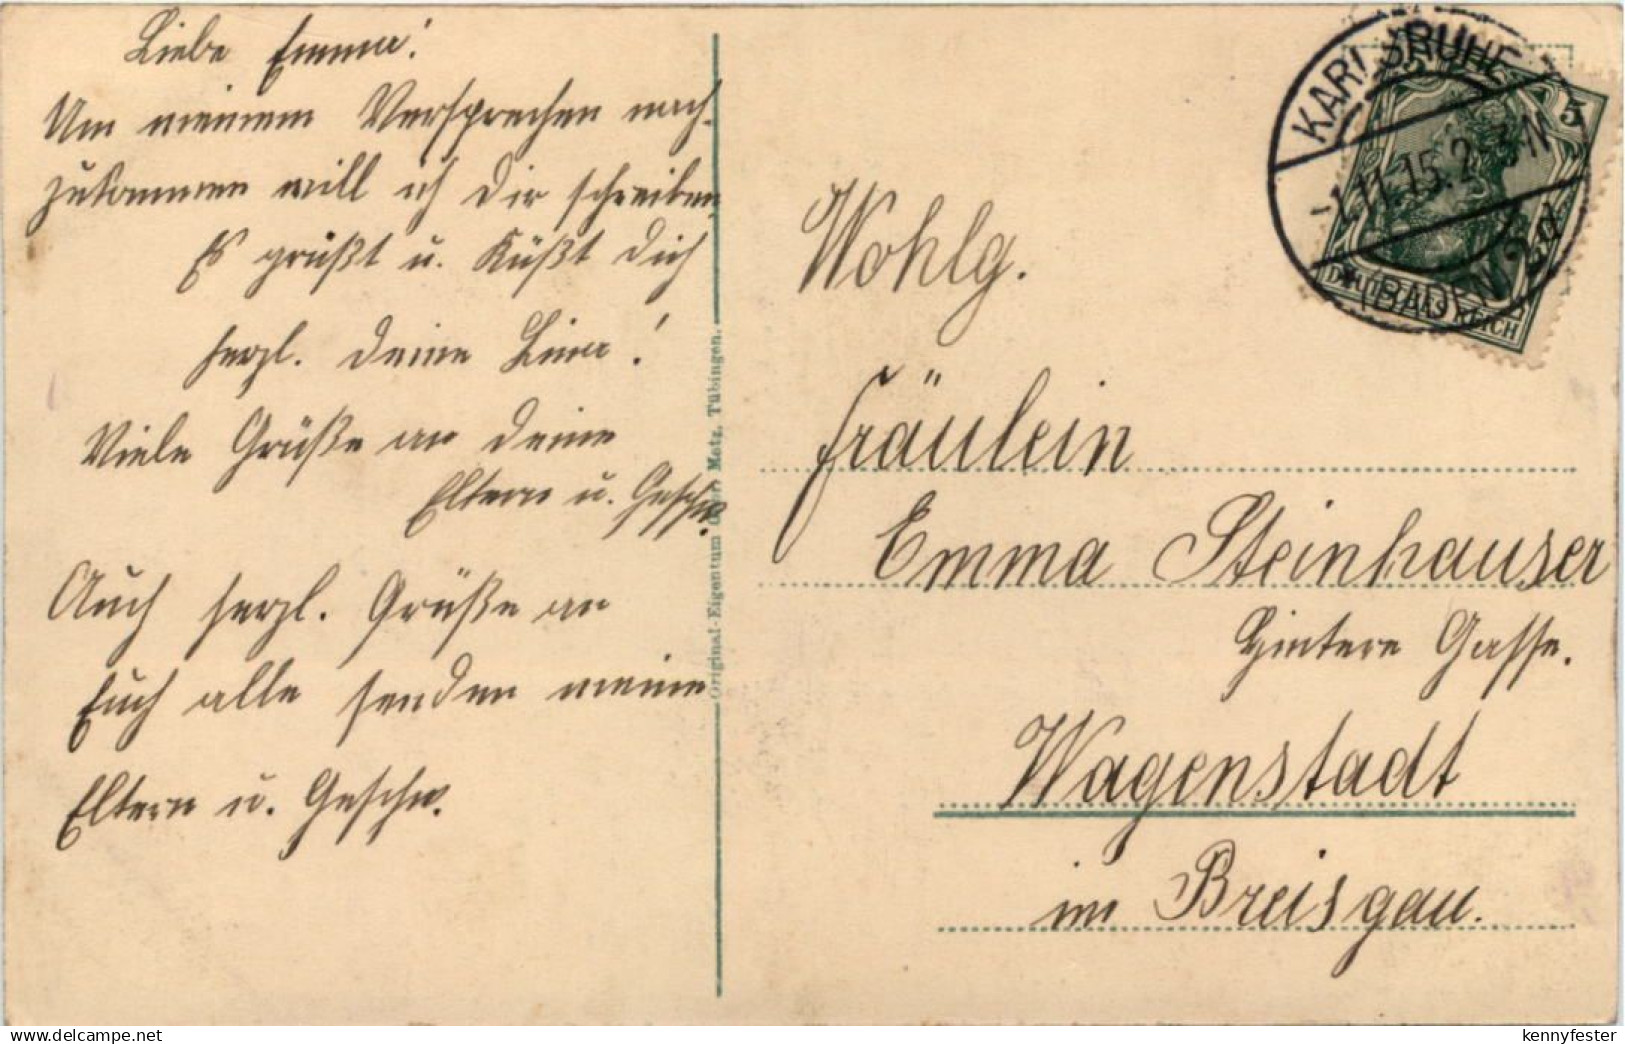 Liebe Emma!
Um meinem Versprechen nach-
zukommen will ich Dir schreiben.
Es grüßt u. Küßt Dich
herzl. Deine Lina!
Viele Grüße an Deine
Eltern u. Geschw.
Auch herzl. Grüße an
Euch alle senden meine
Eltern u. Geschw.
Original-Eigentum Metz, Tübingen.
KARLSRUHE
1.11.15. 2-3 N
(BADEN) 2 d
5
DEUTSCHES REICH
Wohlg.
Fräulein
Emma Steinhauser
Hintere Gasse.
Wagenstadt
im Breisgau.
www.delcampe.net
kennyfester